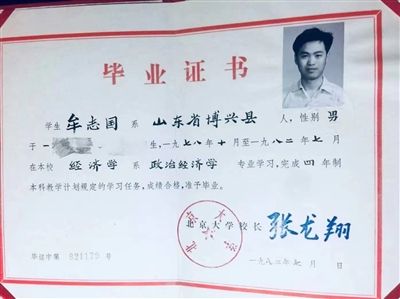 毕业证书
学生 牟志国 系 山东省博兴县 人，性别 男
于一 生，一九七八年十月至一九八二年七月
在本校 经济学 系 政治经济学 专业学习，完成四年制
本科教学计划规定的学习任务，成绩合格，准予毕业。
北京大学校长 张龙翔
北京大学
一九八二年七月 日
毕证字第 821179 号